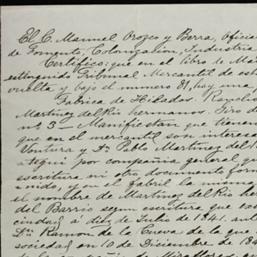 El C. Manuel Orozco y Berra, Oficial
de Fomento, Colonizacion, Industria
Certifico: que en el libro de Ma
extinguido Tribunal Mercantil de esta
vuelta y bajo el numero 81, hay una
Fabrica de Hilados.
Martinez del Rio hermanos. Giro
nº 3 Manifiestan que tienen
que en el mercantil son interesa
Ventura y Dn. Pablo Martinez del
por compañia general que
escritura ni otro documento form
unido, y en el fabril la misma
el nombre de Martinez del Rio her
del Barrio segun escritura que
cindad, á diez de Julio de 1841. ant
Dn. Ramon de la Cueva de la que
sociedad, en 10 de Diciembre de 184
Miraflores